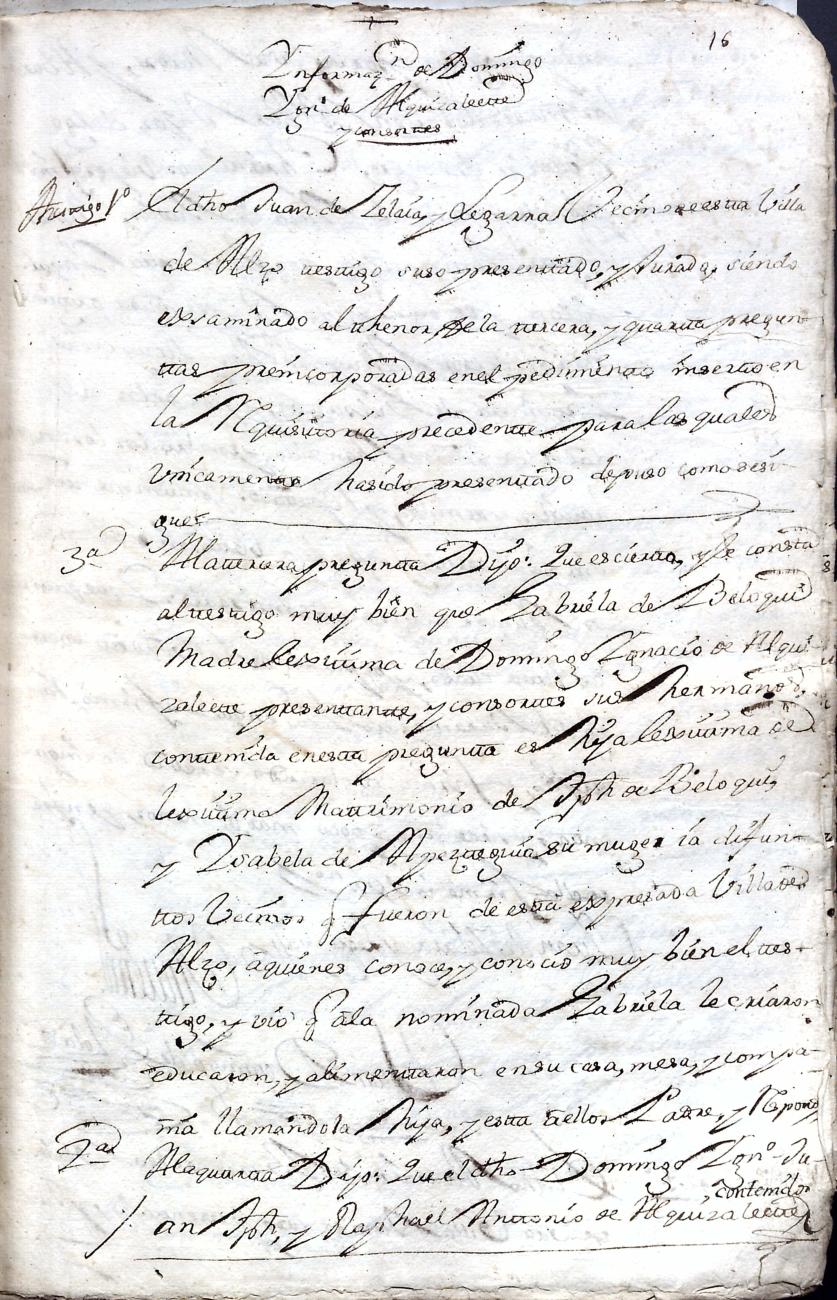 16
Informaz.n de Domingo
Ygn.o de Alquizalette
y consortes
testigo 1º El dho Juan de Zelaia, y Legarra Vecino de esta Villa
de Alzo testigo suso presenttado, y Jurado, siendo
exsaminado al thenor, de la tercera, y quarta pregun-
ttas preincorporadas en el pedimento inserto en
la Requisitoria precedente para las quales
Unicamente ha sido presenttado depuso como se si-
gue
3ª A la tercera pregunta Dijo: Que es cierto, y le consta
al testigo muy bien que Gabriela de Beloqui
Madre lexittima de Domingo Ygnacio de Alqui-
zalette presenttante, y consortes sus hermanos,
contenida en esta pregunta es hija lexittima de
lexittimo Mattrimonio de Jph de Beloqui,
y Ysabela de Apezteguia su muger ia difun-
ttos Vecinos q fueron de esta expresada Villa de
Alzo, a quienes conoce, y conocio muy bien el tes-
tigo, y vio q a la nominada Gabriela le criaron
educaron, y alimenttaron en su casa, mesa, y compa-
nia llamandola hija, y esta a ellos Padre, y
A la quarta Dijo: Que el dho Domingo Ygn.o Ju-
contenido
an Jph, y Raphael Anttonio de Alquizalette